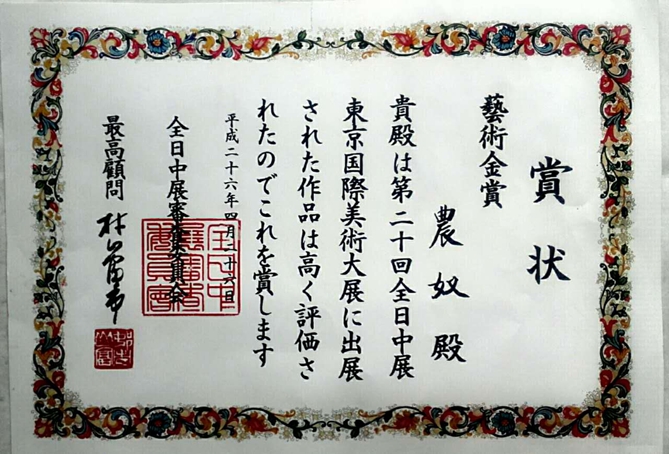 賞状
藝術金賞
農奴殿
貴殿は第二十回全日中展
東京国際美術大展に出展
された作品は高く評価さ
れたのでこれを賞します
平成二十六年四月二十六日
全日中展審査委員会
最高顧問